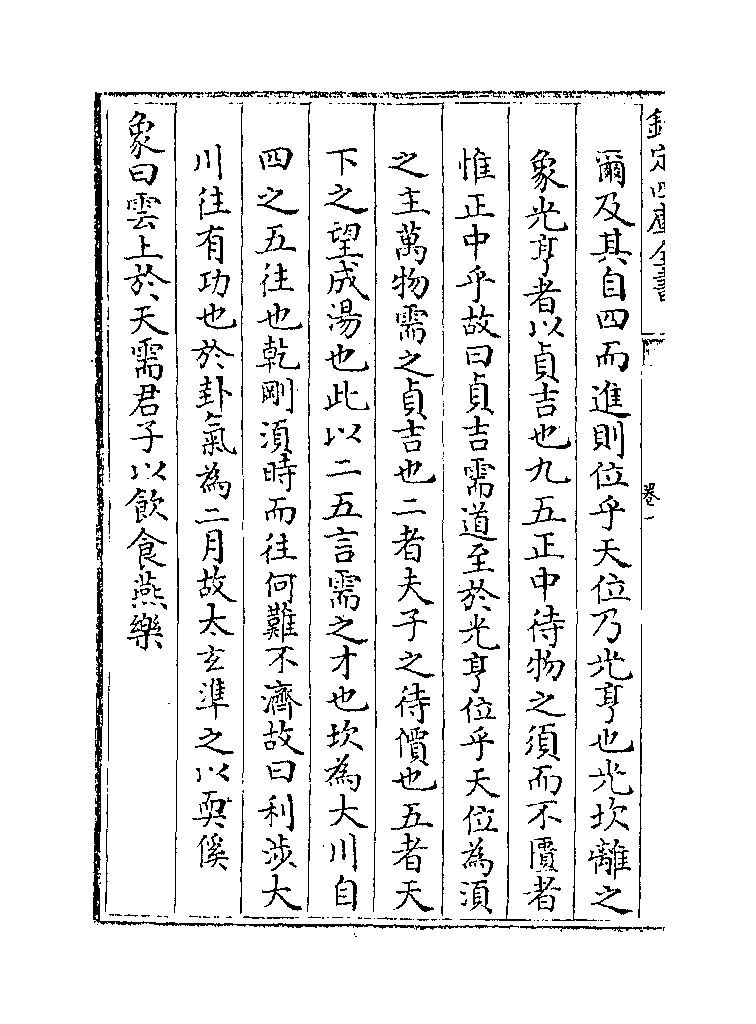 欽定四庫全書
卷一
爾及其自四而進則位乎天位乃光亨也光坎離之
象光亨者以貞吉也九五正中待物之須而不匱者
惟正中乎故曰貞吉需道至於光亨位乎天位為須
之主萬物需之貞吉也二者夫子之待價也五者天
下之望成湯也此以二五言需之才也坎為大川自
四之五往也乾剛須時而往何難不濟故曰利涉大
川往有功也於卦氣為二月故太玄準之以耎傒
象曰雲上於天需君子以飲食燕樂